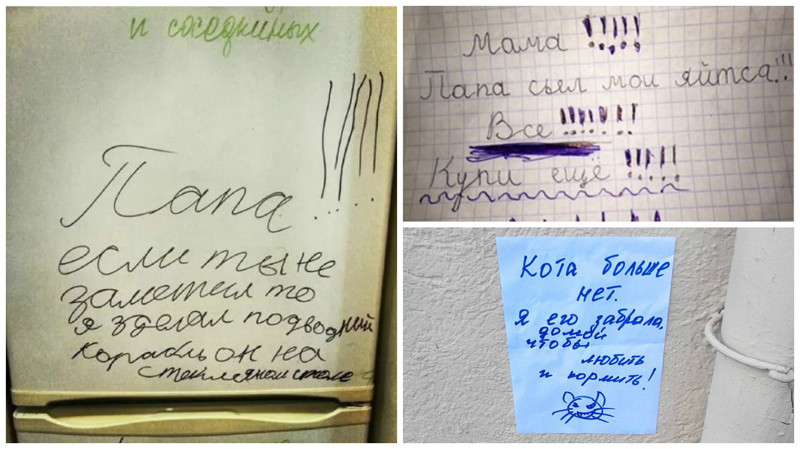 и соседнийных
Папа !!!!!
если ты не
заметил то
я зделал подводний
корабль он на
стекляном столе
Мама !!!!!
Папа сьел мои яйтса!!!
Все !!!!!!!
Купи ещё !!!!!
Кота больше
нет.
Я его забрала
домой
чтобы
любить
и кормить!